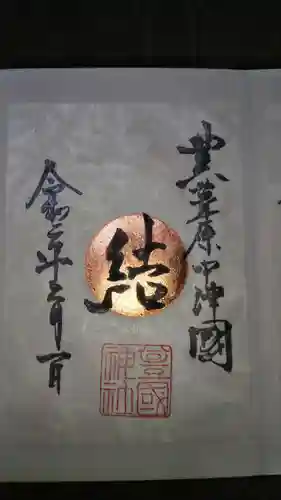 豊葦原中津國
結
國神社
令和二年三月一日